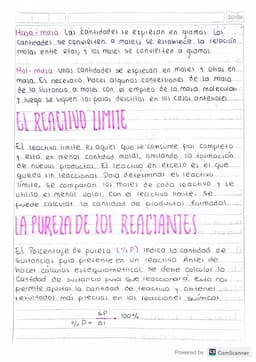 Masa-masa Las cantidades se expresan en gramos. Las
cantidades se convierten a moles, se establece la relación
molar entre ellas, y los moles se convierten a gramos.
Mol-masa Unas cantidades se expresan en moles y otras en
masa. Es necesario hacer algunas conversiones de la masa
de la sustancia a moles con el empleo de la masa molecular
y luego se siguen los pasos descritos en los casos anteriores
EL REACTIVO LIMITE
El reactivo limite es aquel que se consume por completo
y esta en menor cantidad molar, limitando la formación
de nuevos productos. El reactivo en exceso es el que
queda sin reaccionar. Para determinar el reactivo
limite, se comparan los moles de cada reactivo y se
utiliza el menor valor. Con el reactivo limite, se
puede calcular la cantidad de productos formados.
LA PUREZA DE LOS REACTANTES
El Porcentaje de pureza (%P) indica la cantidad de
sustancias pura presente en un reactivo. Antes de
hacer cálculos estequiometricos, se debe calcular la
cantidad de sustancia pura que reaccionará. Esto nos
permite ajustar la cantidad de reactivo y obtener
resultados más precisos en las reacciones químicas.
%P = SP · 100%
Powered by CamScanner